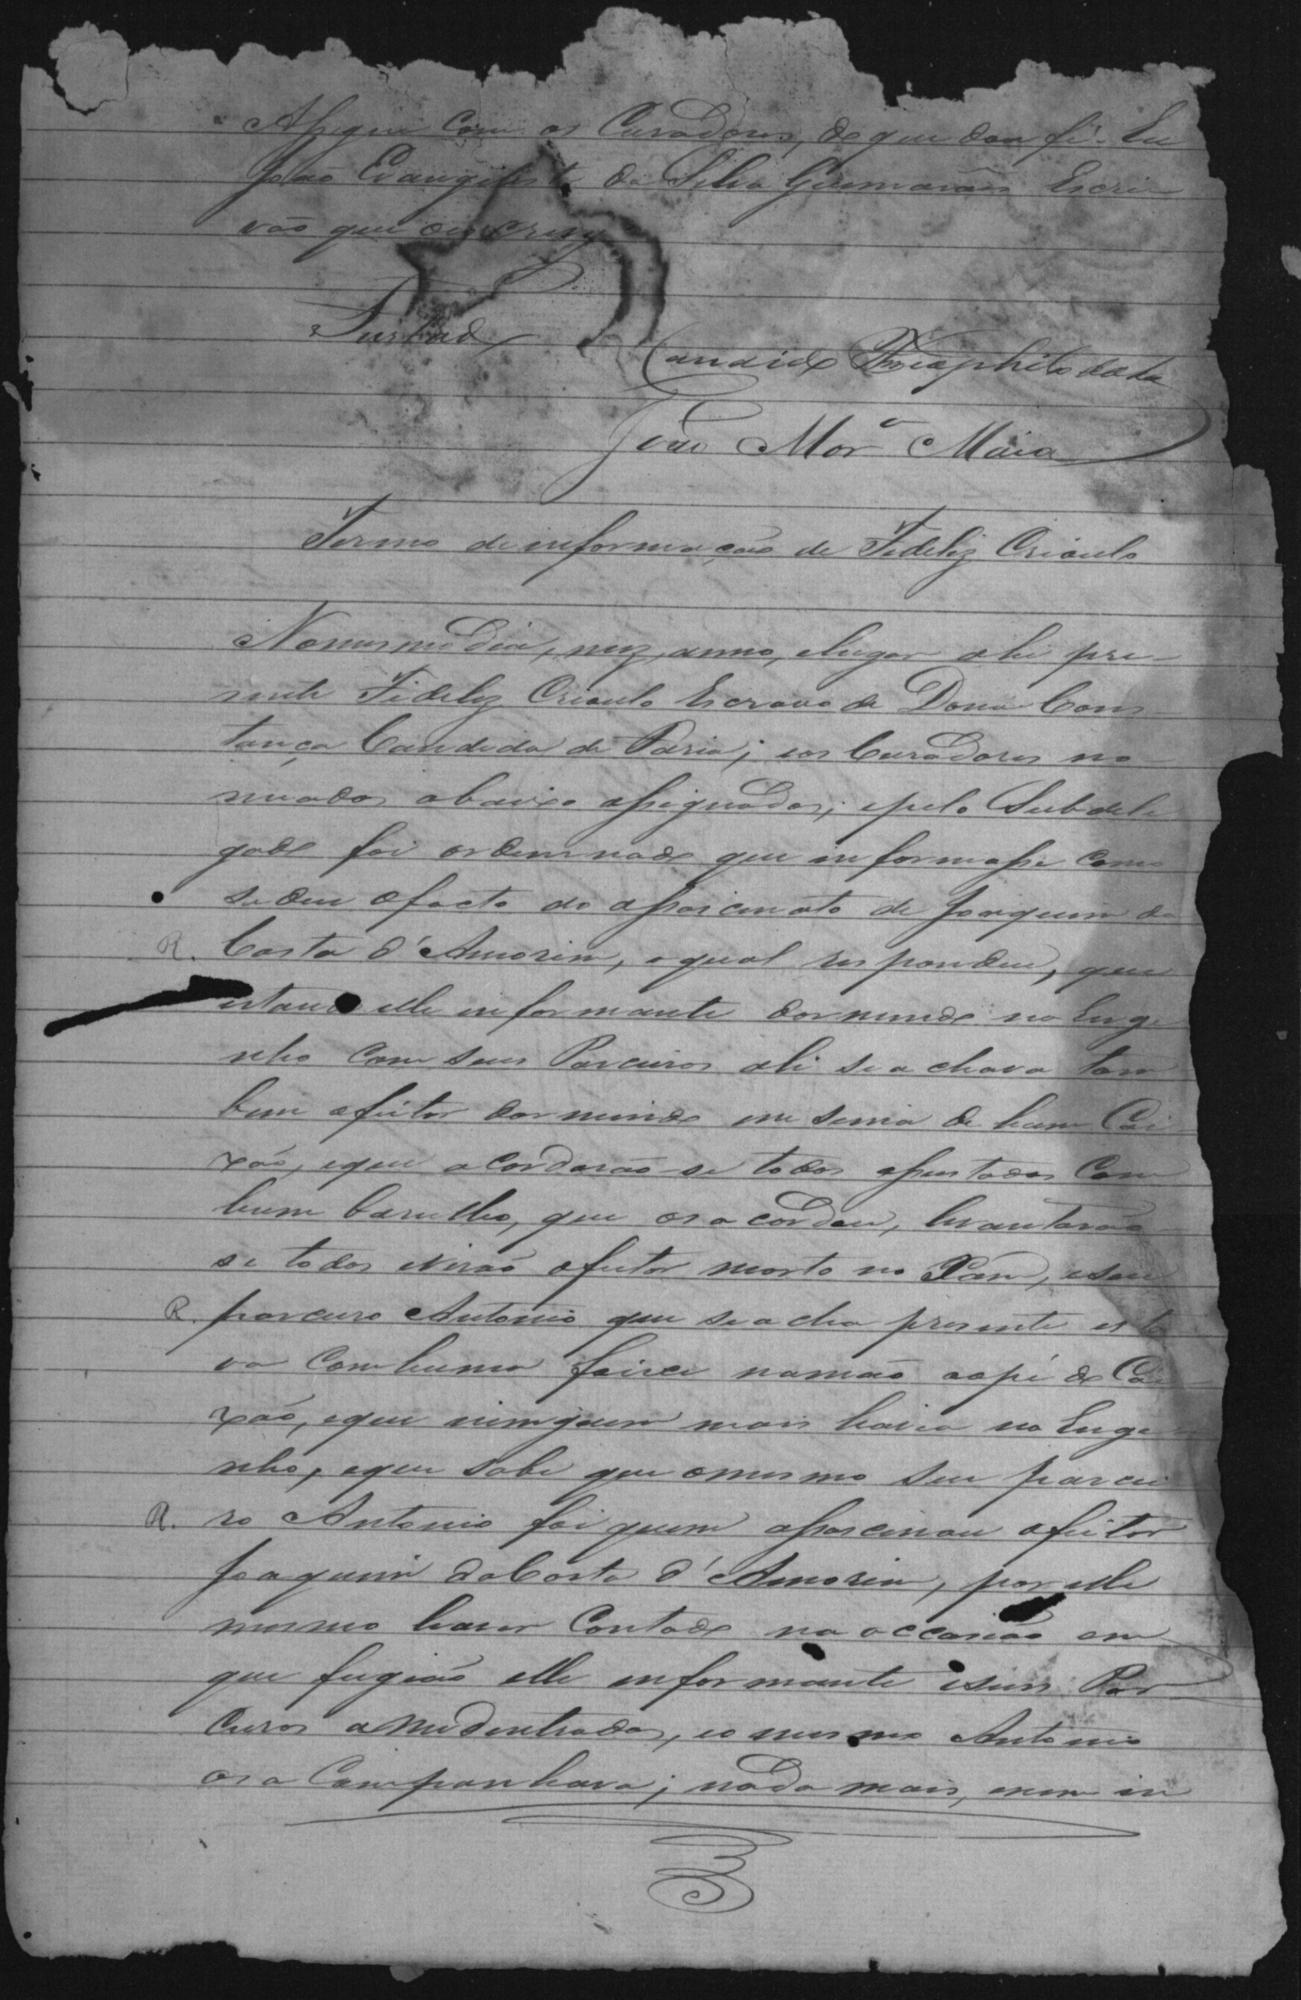 Assigna com os Curadores, de que dou fé. Eu
João Evangelista da Silva Guimarães Escri
vão que escrevy
Furtado
Candido Theophilo
João Mor.ª Maia
Termo de informação de Fideliz Crioulo
No mesmo dia, mez, anno, e lugar ahi pre-
sente Fideliz Crioulo Escravo de Dona Cons
tança Candida de Paria; e os Curadores no
meados abaixo assignados; e pelo Subdele
gado foi ordennado que informasse como
se deu o facto do assacinato de Joaquim da
R. Costa d'Amorim, o qual respondeu, que
estando elle informante dormindo no Enge
nho com seus Parceiros ali se achava tam
bem o feitor dormindo em sima de hum Cai
xão, e que acordarão-se todos assustados com
hum barulho, que os acordou, levantarão
se todos e virão o feitor morto no Xam, e seu
R. parceiro Antonio que se acha presente esta
va com huma foice na mão ao pé do Cai
xão, e que ninguem mais havia no Enge
nho, e que sabe que o mesmo seu parcei
R. ro Antonio foi quem assacinou o feitor
Joaquim da Costa d'Amorim, por elle
mesmo haver Contado na occasião em
que fugião elle informante e seus Par
ceiros amedentrados, e o mesmo Antonio
os acompanhava; nada mais, e nem in